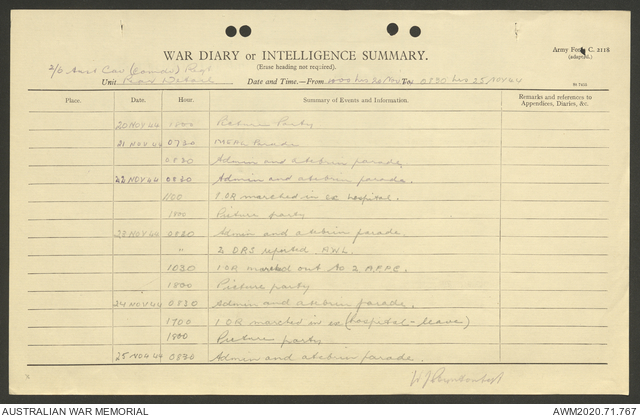 WAR DIARY or INTELLIGENCE SUMMARY.
(Erase heading not required).
Army Form C. 2118
(adapted).
2/6 Aust Cav (Comdo) Regt
Unit Date and Time.—From 1000 hrs 20 Nov To 0830 hrs 25 NOV 44
Place. Date. Hour. Summary of Events and Information. Remarks and references to Appendices, Diaries, &c.
20 NOV 44 1800 Picture Party
21 NOV 44 0730 MEAL Parade
0830 Admin and atebrin parade
22 NOV 44 0830 Admin and atebrin parade.
1100 1 OR marched in ex hospital.
1800 Picture party
23 NOV 44 0830 Admin and atebrin parade.
" 2 ORS reported AWL
1030 1 OR marched out to 2
1800 Picture party
24 NOV 44 0830 Admin and atebrin parade.
1700 1 OR marched in ex (hospital - leave)
1800 Picture party
25 NOV 44 0830 Admin and atebrin parade.
AUSTRALIAN WAR MEMORIAL
AWM2020.71.767